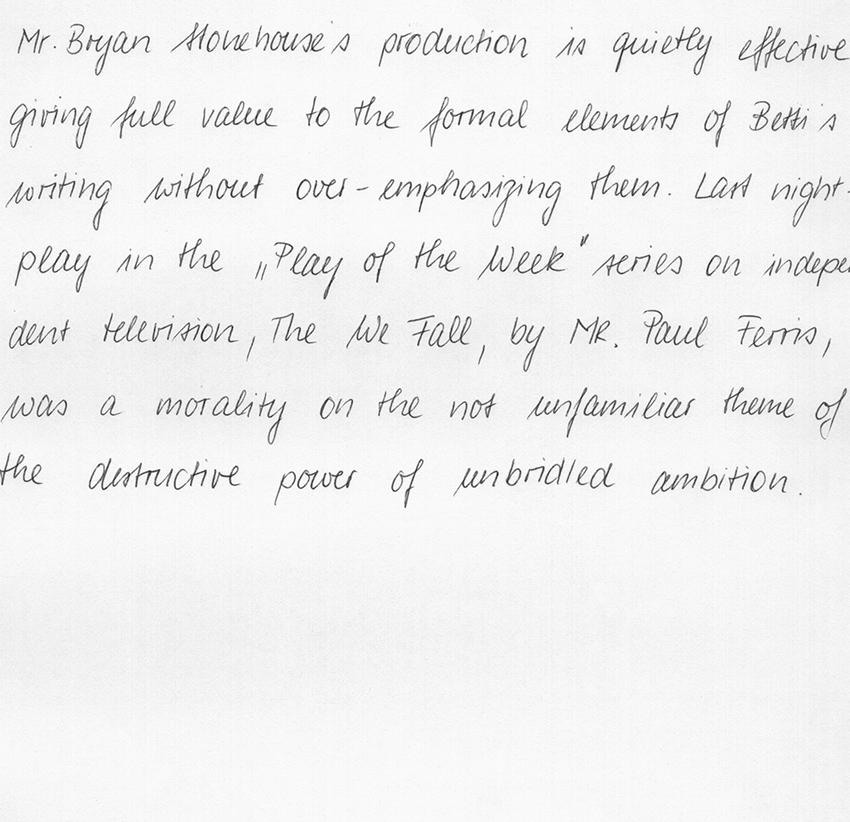 Mr. Bryan Stonehouse's production is quietly effective
giving full value to the formal elements of Betti's
writing without over-emphasizing them. Last night-
play in the „Play of the Week" series on indepe
dent television, The We Fall, by MR. Paul Ferris,
was a morality on the not unfamiliar theme of
the destructive power of unbridled ambition.